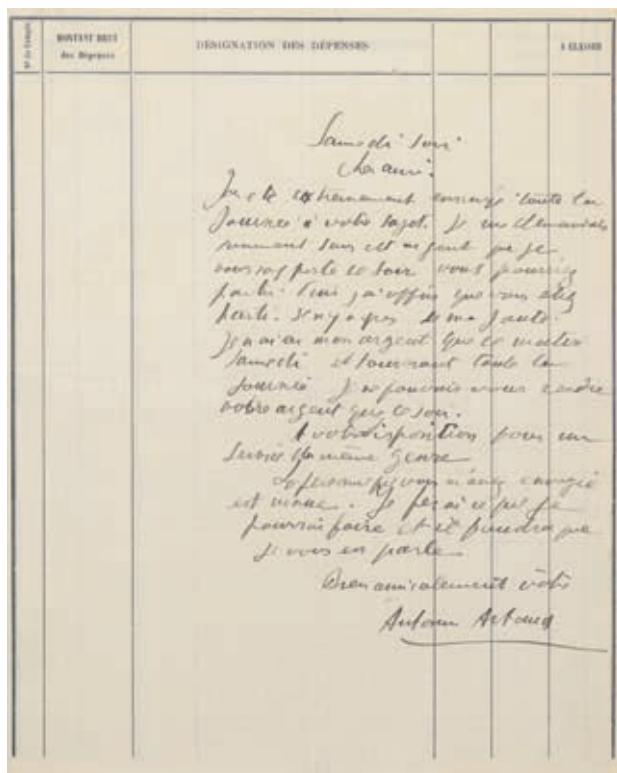 N° de Compte
MONTANT BRUT
des Dépenses
DÉSIGNATION DES DÉPENSES
A CLASSER
Samedi soir
Cher ami.
J'ai été extrêmement ennuyé toute la
journée à votre sujet. Je me demandais
vraiment sans cet argent que je
vous rapporte ce soir vous pourriez
partir. Puis j'ai appris que vous étiez
parti. Il n'y a pas de ma faute.
Je n'ai eu mon argent que ce matin
samedi et tournant toute la
journée je ne pouvais vous rendre
votre argent que ce soir.
A votre disposition pour un
service du même genre
La personne que vous m'avez envoyée
est venue. Je ferai ce que je
pourrai faire et il faudra que
je vous en parle
Bien amicalement vôtre
Antonin Artaud